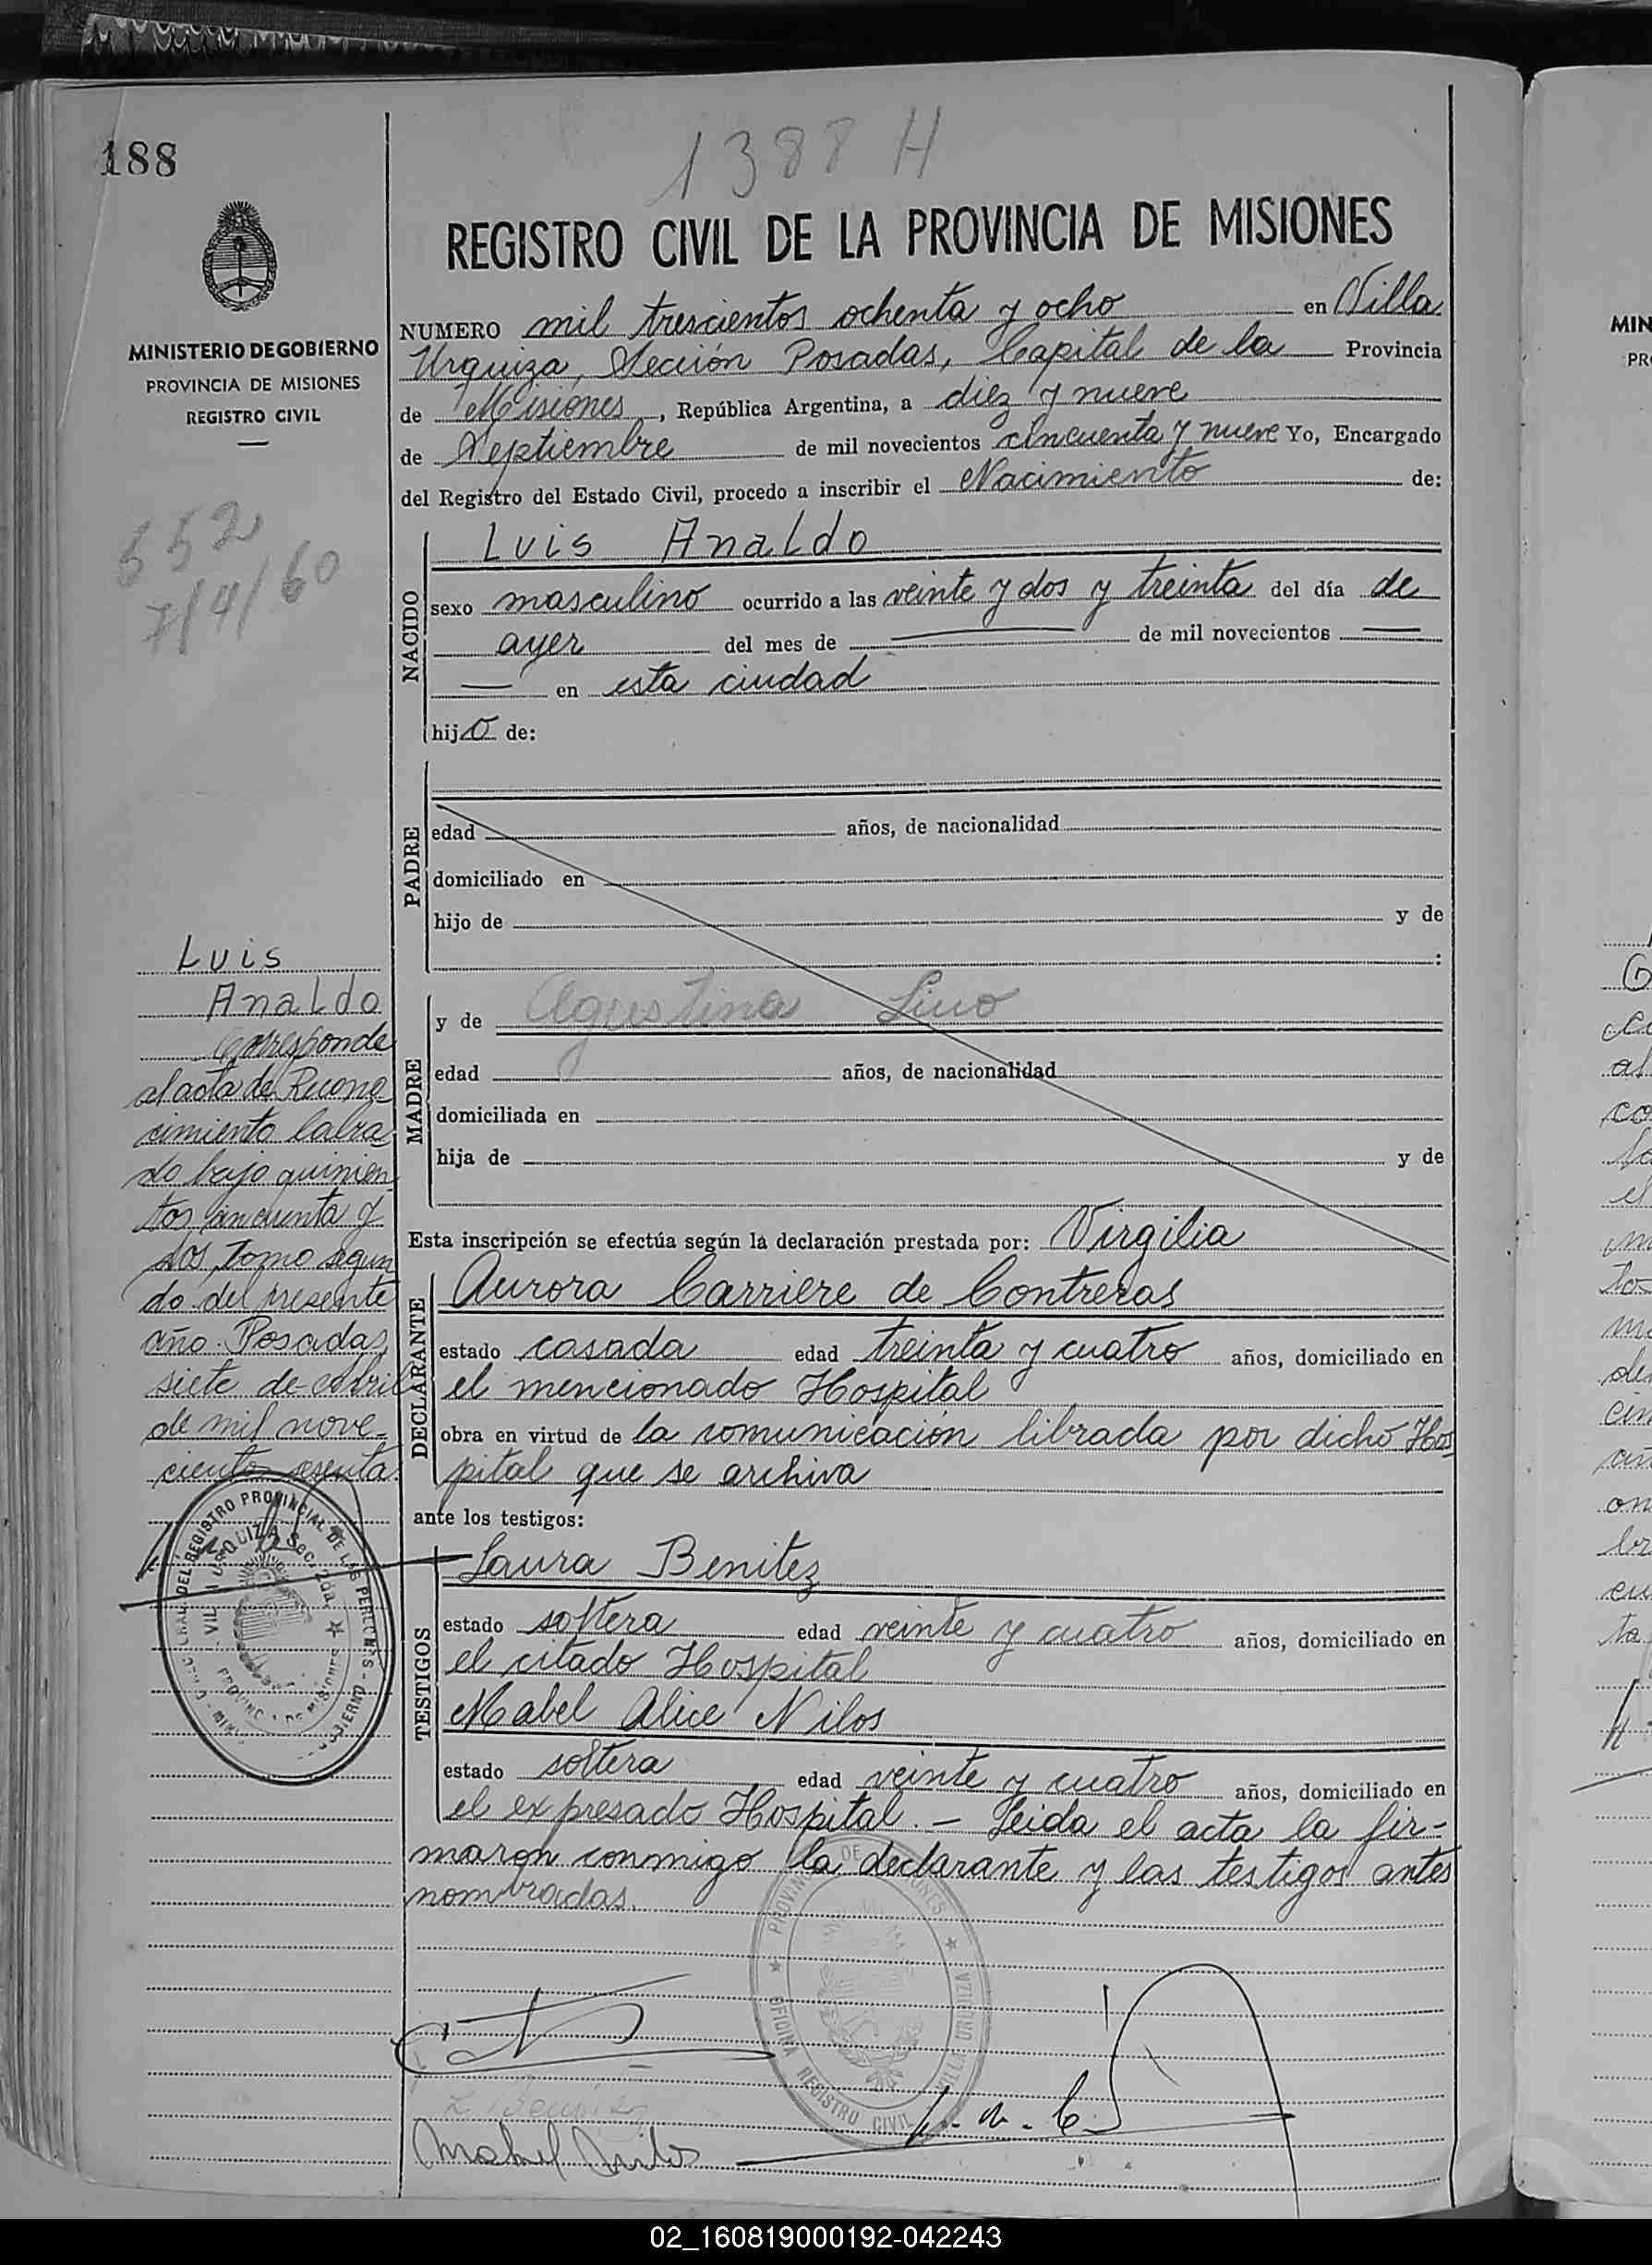 188
1388 H
REGISTRO CIVIL DE LA PROVINCIA DE MISIONES
MINISTERIO DE GOBIERNO
PROVINCIA DE MISIONES
REGISTRO CIVIL
552
7/4/60
NUMERO mil trescientos ochenta y ocho en Villa
Urquiza, Sección Posadas, Capital de la Provincia
de Misiones, República Argentina, a diez y nueve
de Septiembre de mil novecientos cincuenta y nueve Yo, Encargado
del Registro del Estado Civil, procedo a inscribir el Nacimiento de:
NACIDO
Luis Analdo
sexo masculino ocurrido a las veinte y dos y treinta del día de
ayer del mes de — de mil novecientos —
— en esta ciudad
hijo de:
PADRE
edad años, de nacionalidad
domiciliado en
hijo de y de
:
MADRE
y de Agustina Lino
edad años, de nacionalidad
domiciliada en
hija de y de
Esta inscripción se efectúa según la declaración prestada por: Virgilia
DECLARANTE
Aurora Carriere de Contreras
estado casada edad treinta y cuatro años, domiciliado en
el mencionado Hospital
obra en virtud de la comunicación librada por dicho Hos
pital que se archiva
ante los testigos:
TESTIGOS
Laura Benitez
estado soltera edad veinte y cuatro años, domiciliado en
el citado Hospital
Mabel Alice Nilos
estado soltera edad veinte y cuatro años, domiciliado en
el expresado Hospital. — Leida el acta la fir-
maron conmigo la declarante y las testigos antes
nombradas.
Luis
Analdo
Corresponde
al acta de Recono
cimiento labra
do bajo quinien
tos cincuenta y
dos, Tomo segun
do del presente
año. Posadas,
siete de abril
de mil nove-
cientos sesenta.
PROVINCIA DE MISIONES
OFICINA REGISTRO CIVIL VILLA URQUIZA
L Benitez
02_160819000192-042243